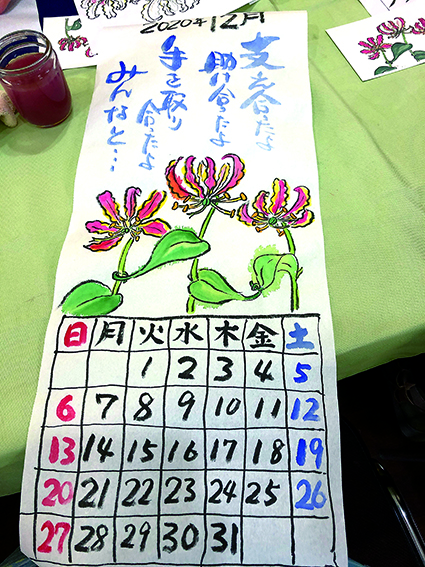 2020年12月
支え合ったよ
助け合ったよ
手を取り
合ったよ
みんなと…
日 月 火 水 木 金 土
1 2 3 4 5
6 7 8 9 10 11 12
13 14 15 16 17 18 19
20 21 22 23 24 25 26
27 28 29 30 31